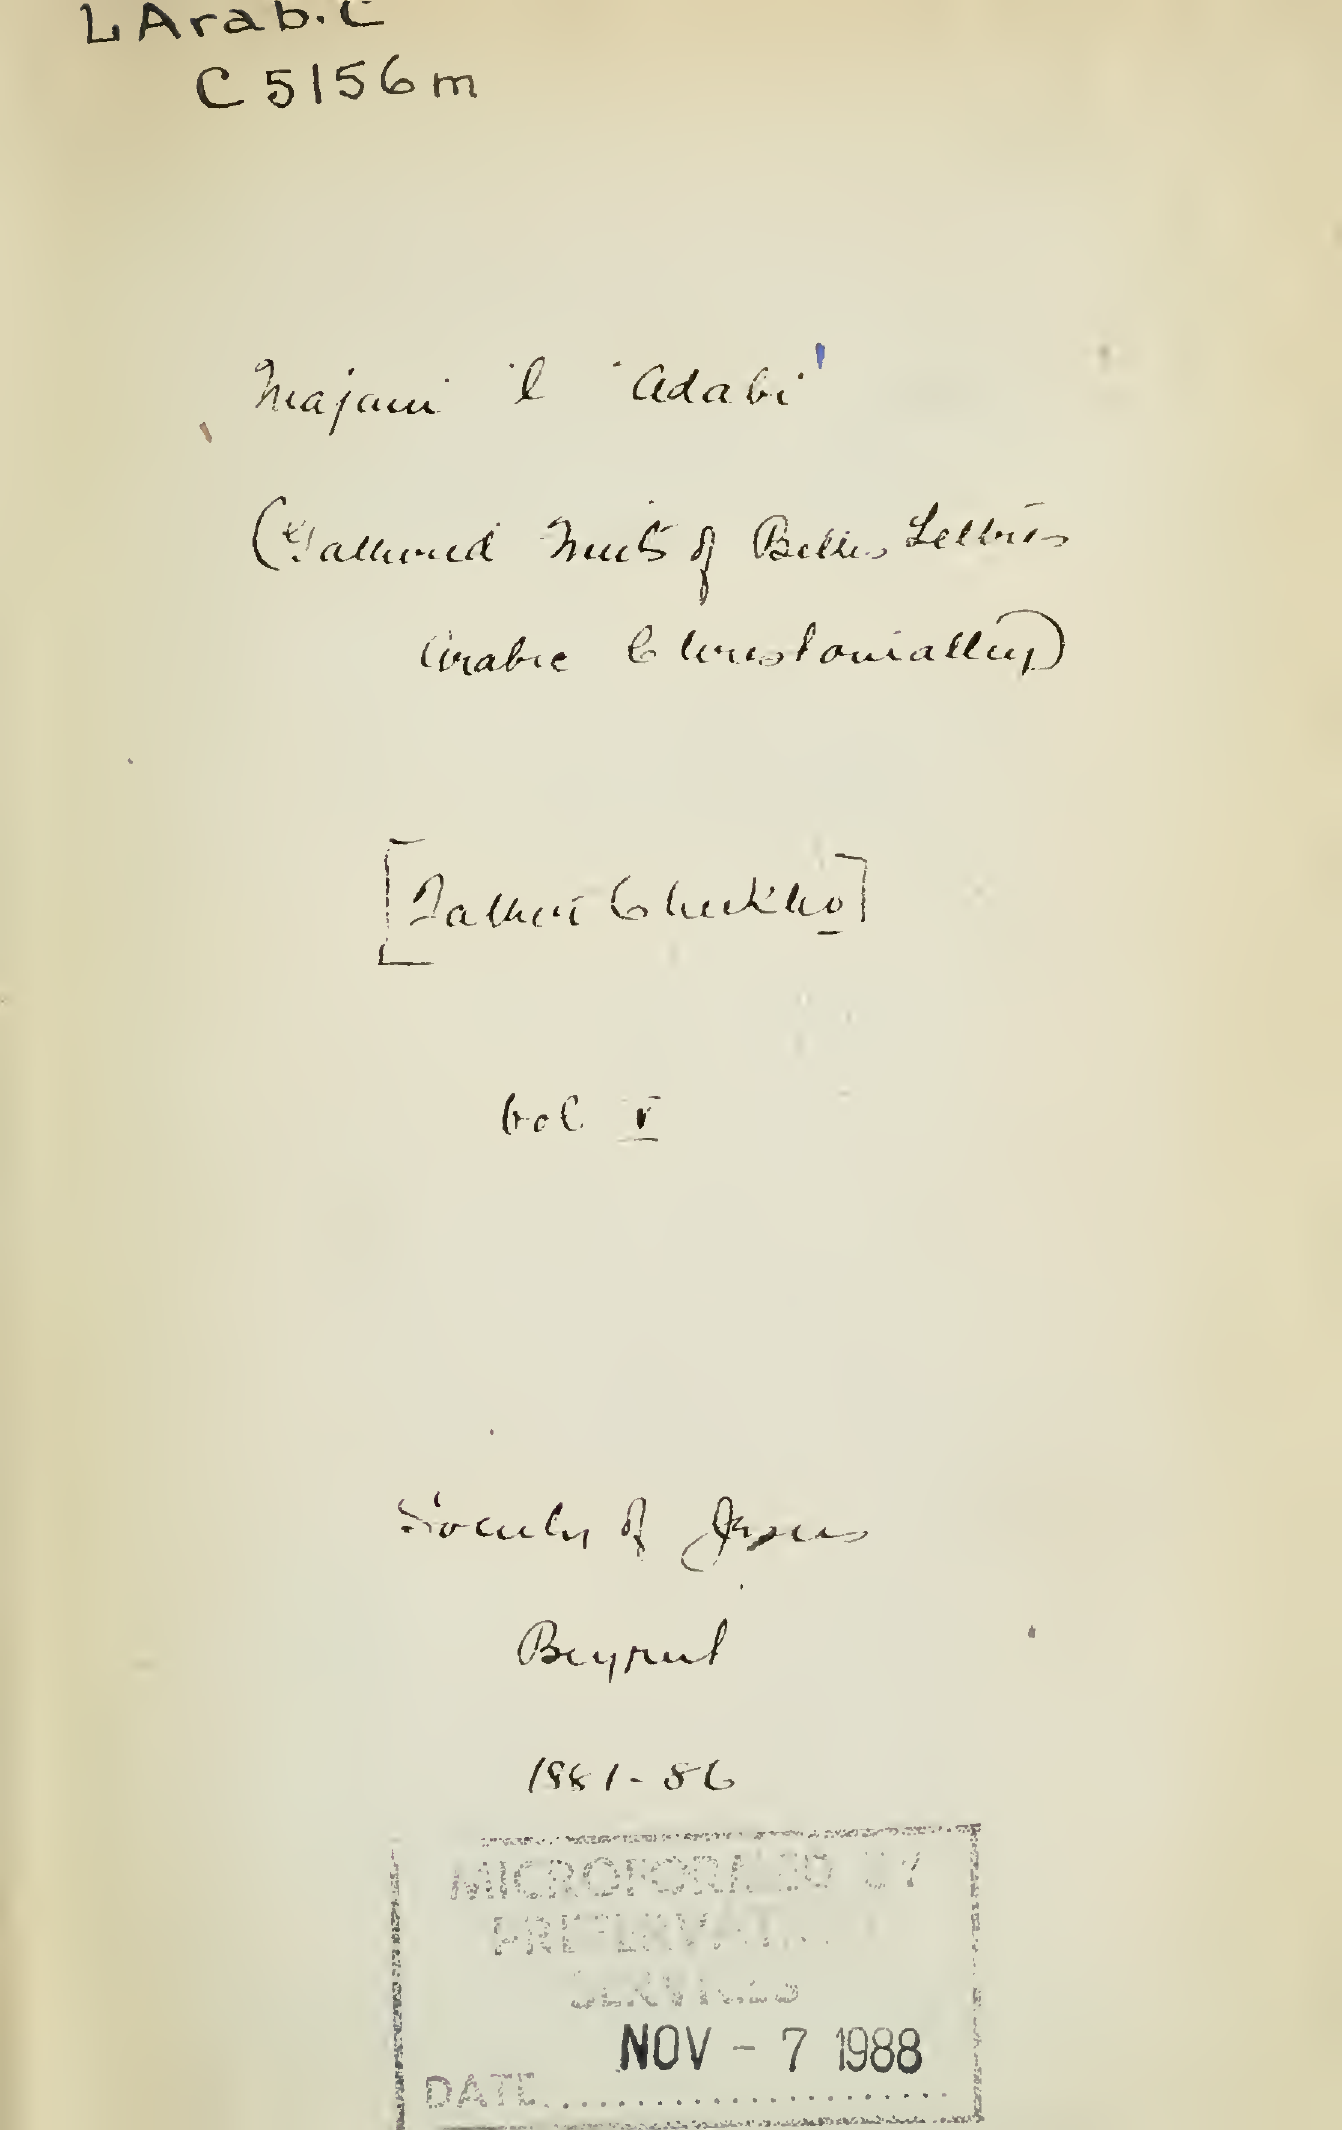 L Arab. C
C 5156 m
Majani 'l 'Adabi
(Gathered Fruits of Belles Lettres
Arabic Chrestomathy)
[Father Cheikho]
Vol V
Society of Jesus
Beyrut
1881-86
MICROFORMED BY
PRESERVATION
SERVICES
NOV - 7 1988
DATE